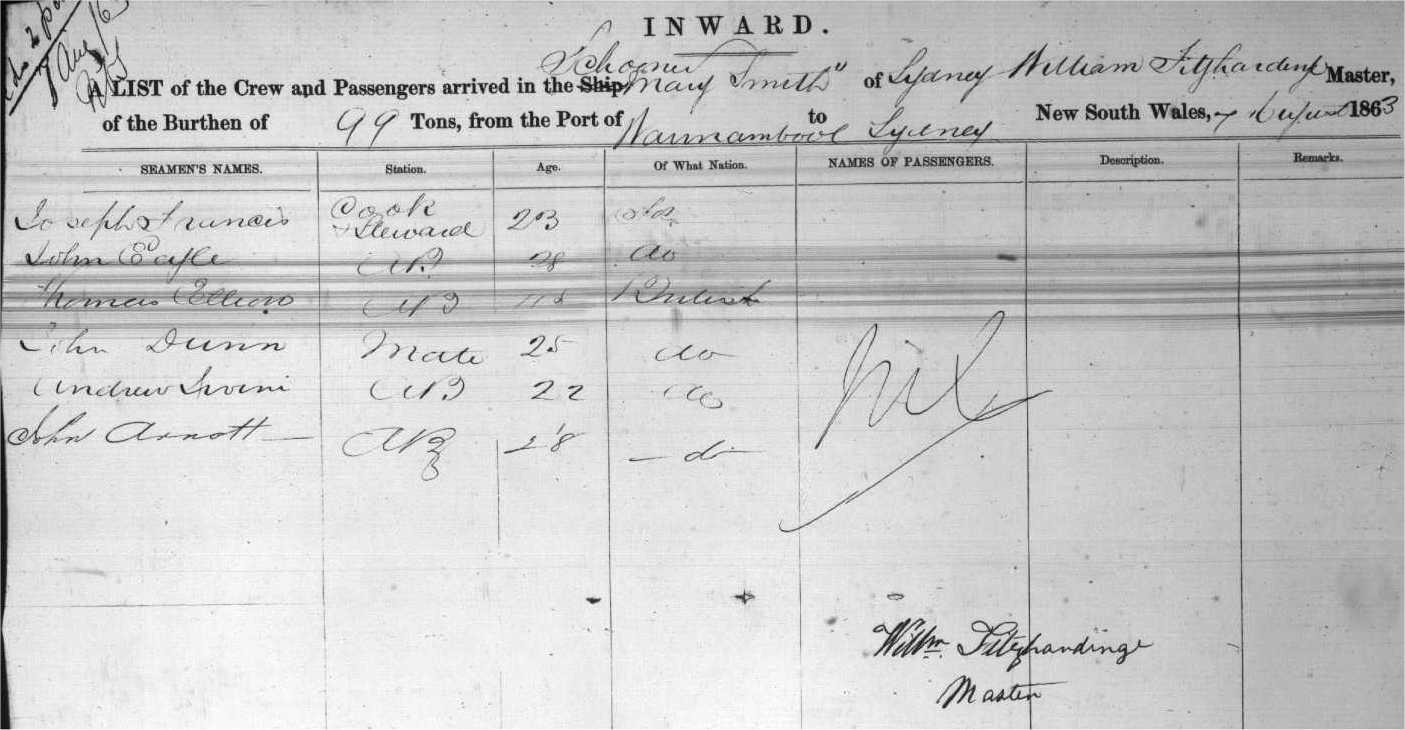 7 Aug/63
INWARD.
Schooner
A LIST of the Crew and Passengers arrived in the Ship "Mary Smith" of Sydney William Fitzhardinge Master,
of the Burthen of 99 Tons, from the Port of Warrnambool to Sydney New South Wales, 7 August 1863
SEAMEN'S NAMES. Station. Age. Of What Nation. NAMES OF PASSENGERS. Description. Remarks.
Joseph Francis Cook & Steward 23
John AB 28 do
Thomas AB British
John Dunn Mate 25 do
Andrew AB 22 do
John Arnott AB 28 do
Nil
Willm. Fitzhardinge
Master